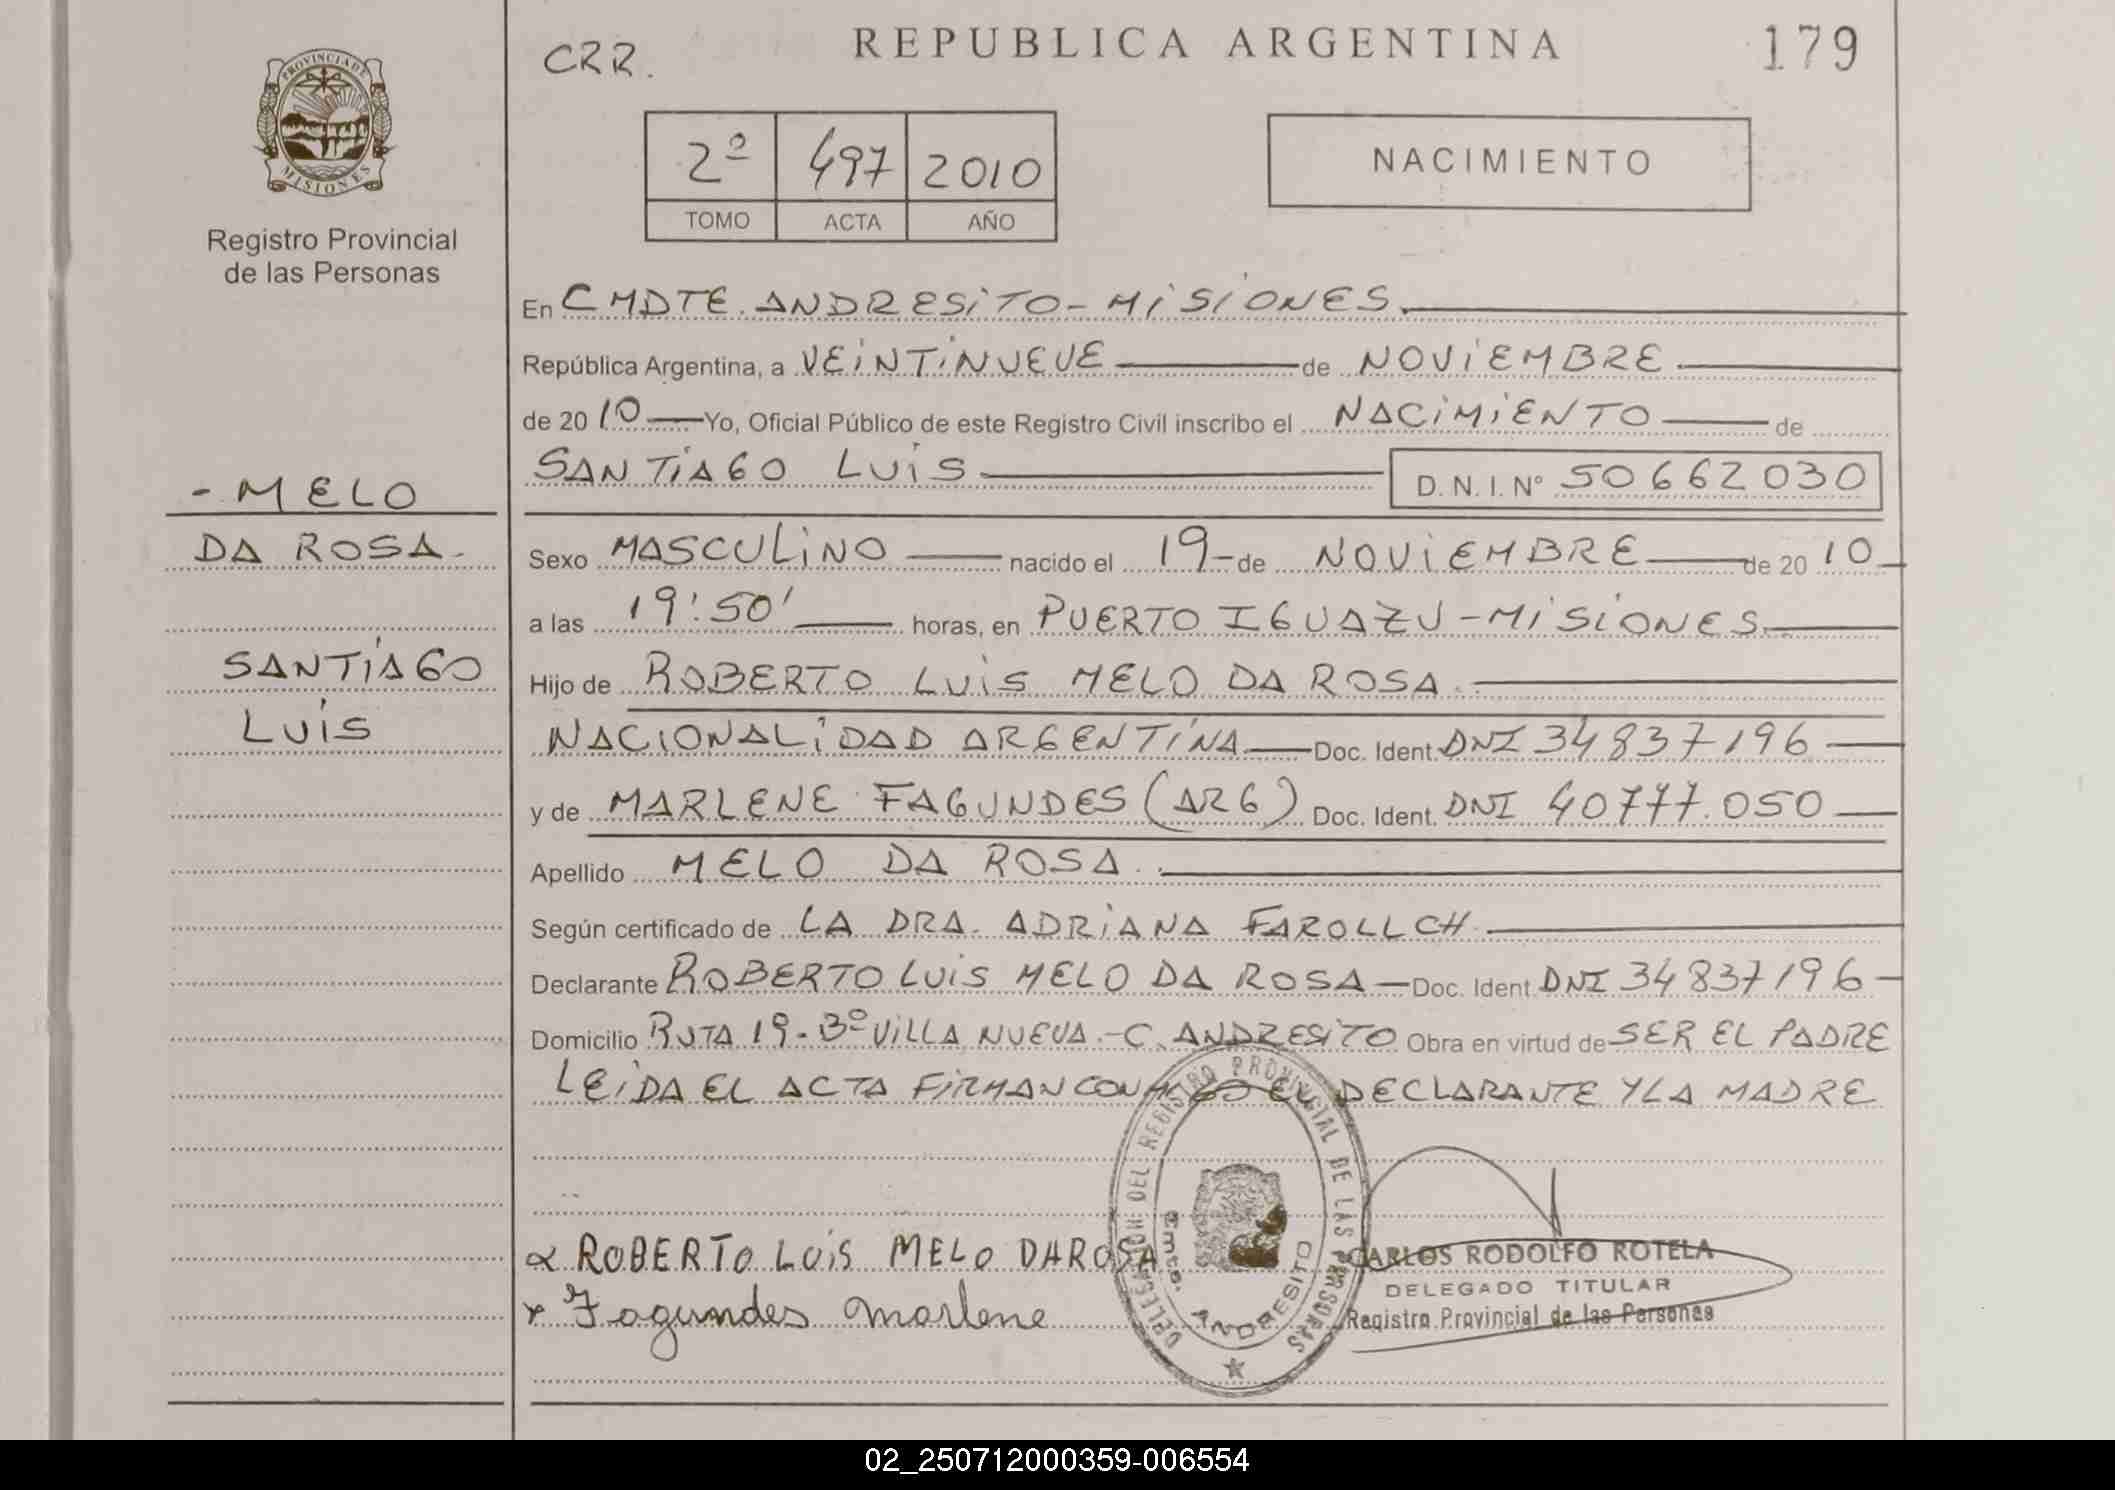 CRR.
REPUBLICA ARGENTINA
179
PROVINCIA DE
MISIONES
Registro Provincial
de las Personas
2º 497 2010
TOMO ACTA AÑO
NACIMIENTO
En CMDTE. ANDRESITO - MISIONES.
República Argentina, a VEINTINUEVE de NOVIEMBRE
de 20 10 Yo, Oficial Público de este Registro Civil inscribo el NACIMIENTO de
SANTIAGO LUIS D. N. I. Nº 50662030
- MELO
DA ROSA.
SANTIAGO
LUIS
Sexo MASCULINO nacido el 19 - de NOVIEMBRE de 20 10
a las 19:50' horas, en PUERTO IGUAZU - MISIONES
Hijo de ROBERTO LUIS MELO DA ROSA.
NACIONALIDAD ARGENTINA Doc. Ident. DNI 34837196
y de MARLENE FAGUNDES (ARG) Doc. Ident. DNI 40777.050
Apellido MELO DA ROSA.
Según certificado de LA DRA. ADRIANA FAROLLCH
Declarante ROBERTO LUIS MELO DA ROSA - Doc. Ident DNI 34837196 -
Domicilio RUTA 19 - Bº VILLA NUEVA - C. ANDRESITO Obra en virtud de SER EL PADRE
LEIDA EL ACTA FIRMAN CONMIGO EL DECLARANTE Y LA MADRE
ROBERTO LUIS MELO DAROSA
Fagundes Marlene
DELEGACION DEL REGISTRO PROVINCIAL DE LAS PERSONAS
Cmte. ANDRESITO
CARLOS RODOLFO ROTELA
DELEGADO TITULAR
Registro Provincial de las Personas
02_250712000359-006554